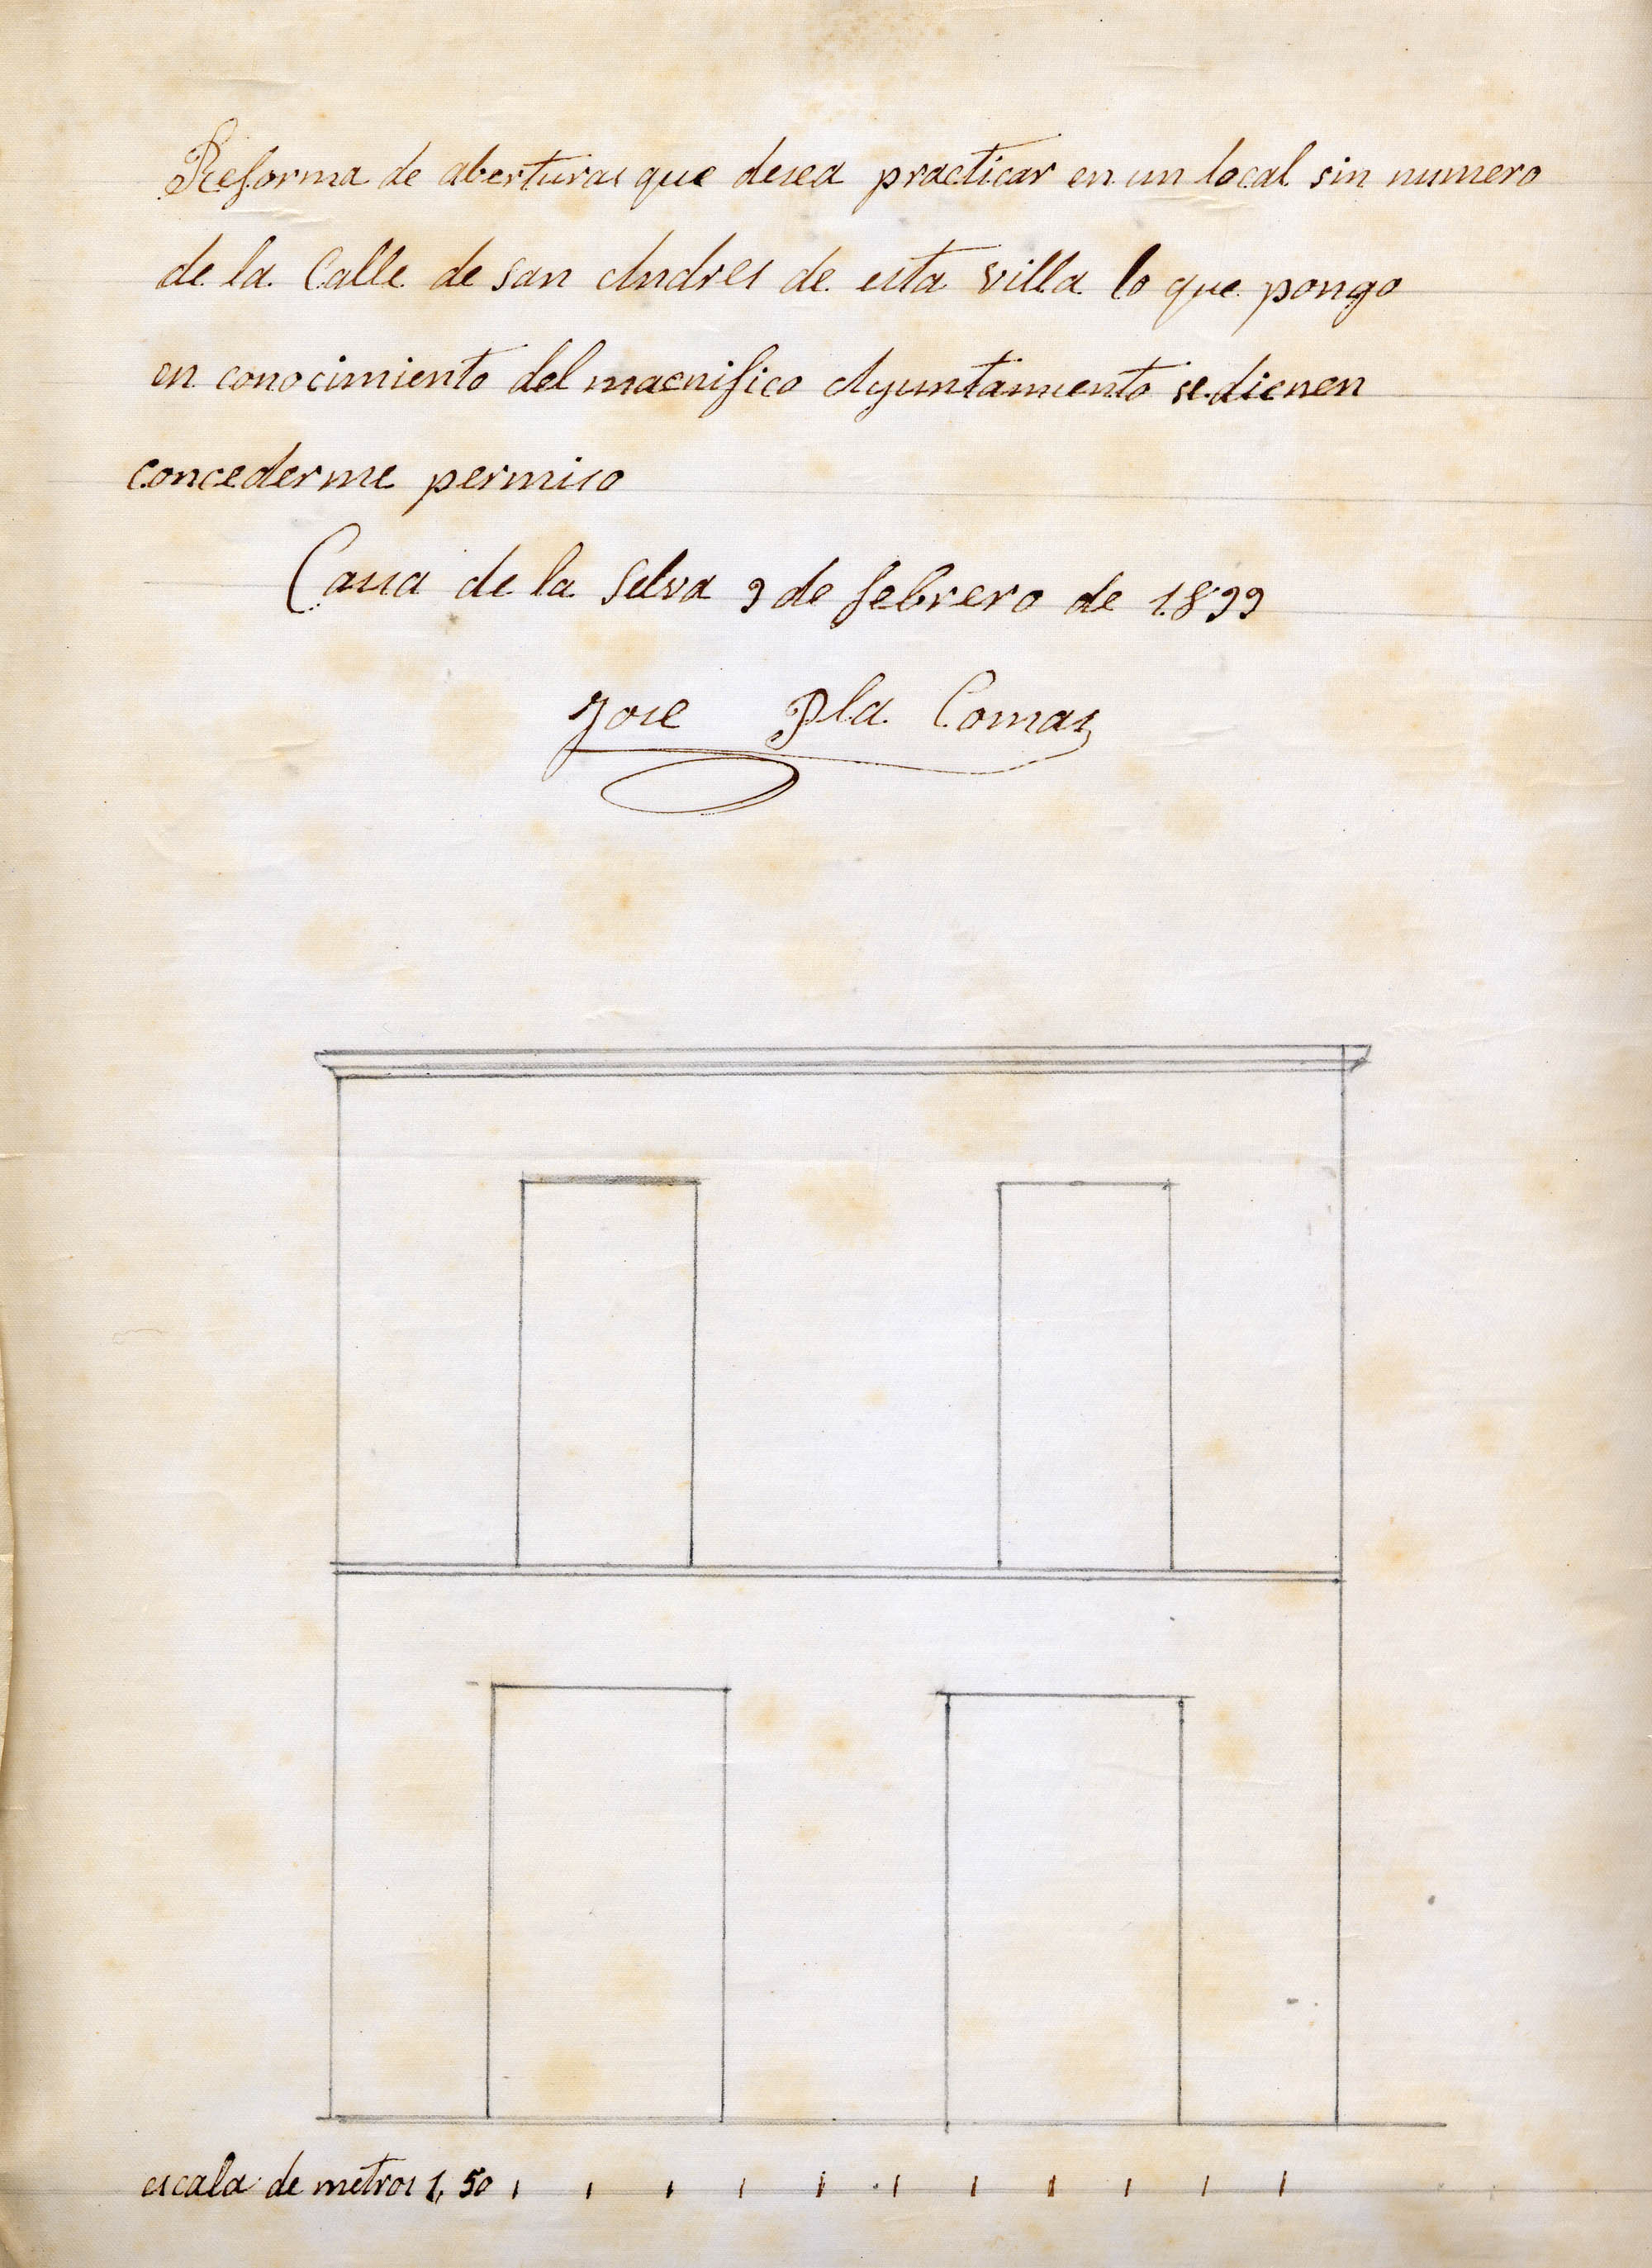 Reforma de aberturas que desea practicar en un local sin numero
de la Calle de San Andres de esta villa lo que pongo
en conocimiento del macnifico Ayuntamiento se dicnen
concederme permiso
Cassa de la Selva 9 de febrero de 1899
Jose Pla Comas
escala de metros 1, 50